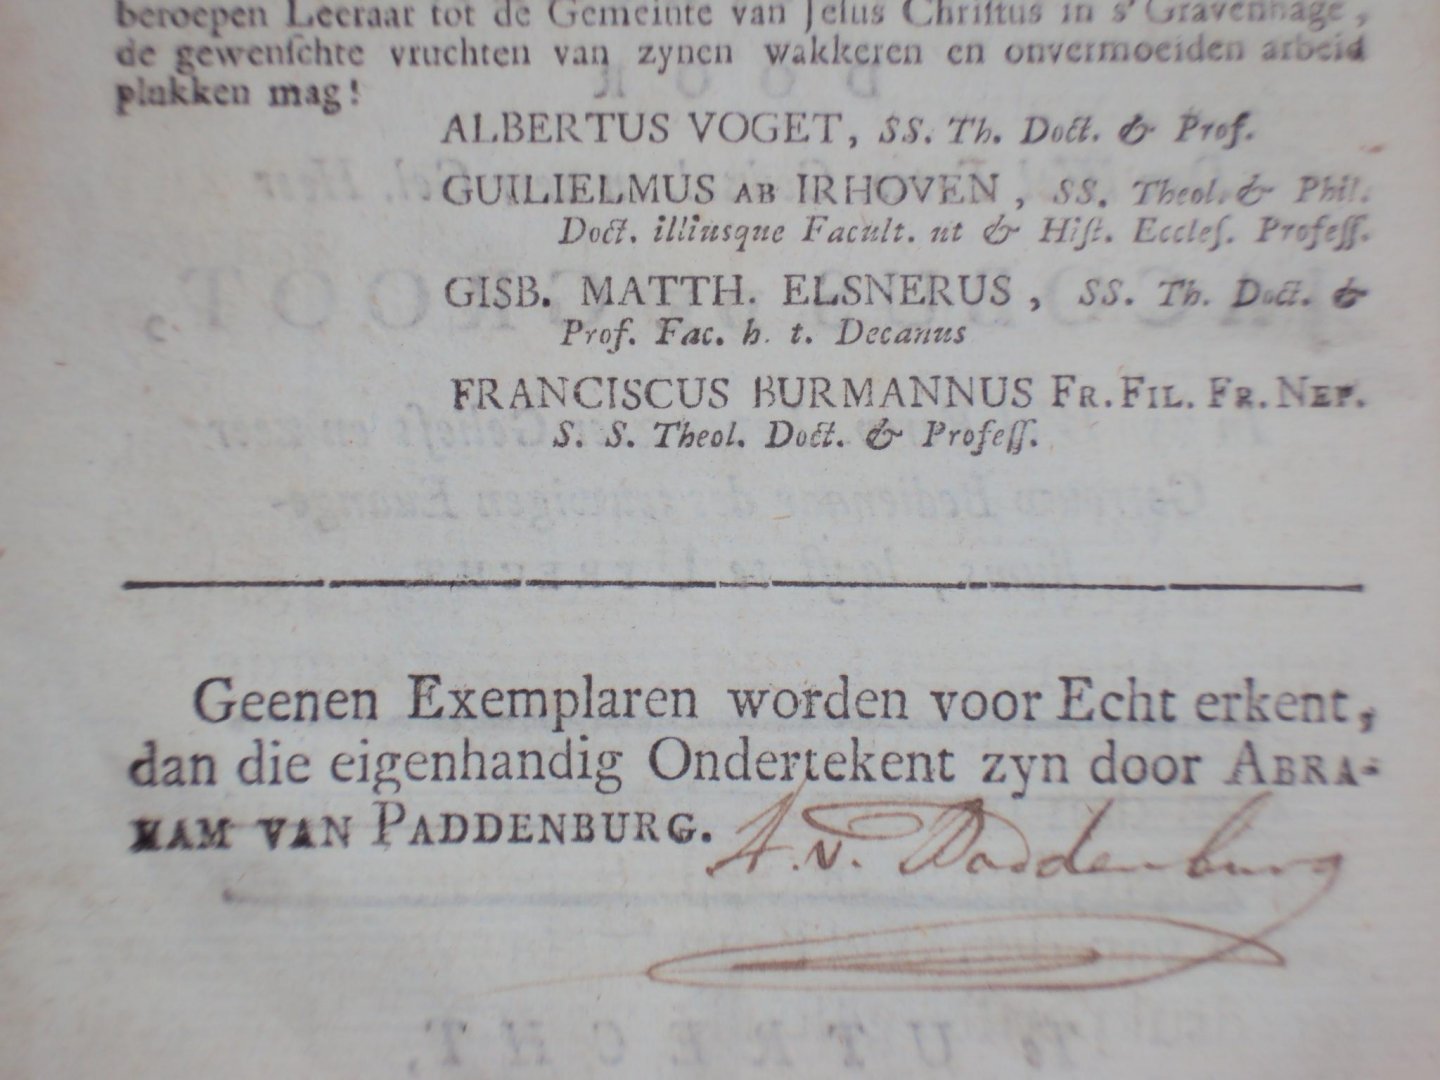 beroepen Leeraar tot de Gemeinte van Jeſus Chriſtus in s'Gravenhage,
de gewenſchte vruchten van zynen wakkeren en onvermoeiden arbeid
plukken mag!
ALBERTUS VOGET, SS. Th. Doct. & Prof.
GUILIELMUS AB IRHOVEN, SS. Theol. & Phil.
Doct. illiusque Facult. ut & Hiſt. Eccleſ. Profeſſ.
GISB. MATTH. ELSNERUS, SS. Th. Doct. &
Prof. Fac. h. t. Decanus
FRANCISCUS BURMANNUS FR. FIL. FR. NEP.
S. S. Theol. Doct. & Profeſſ.
Geenen Exemplaren worden voor Echt erkent,
dan die eigenhandig Ondertekent zyn door ABRA-
HAM VAN PADDENBURG.
A. v. Paddenburg